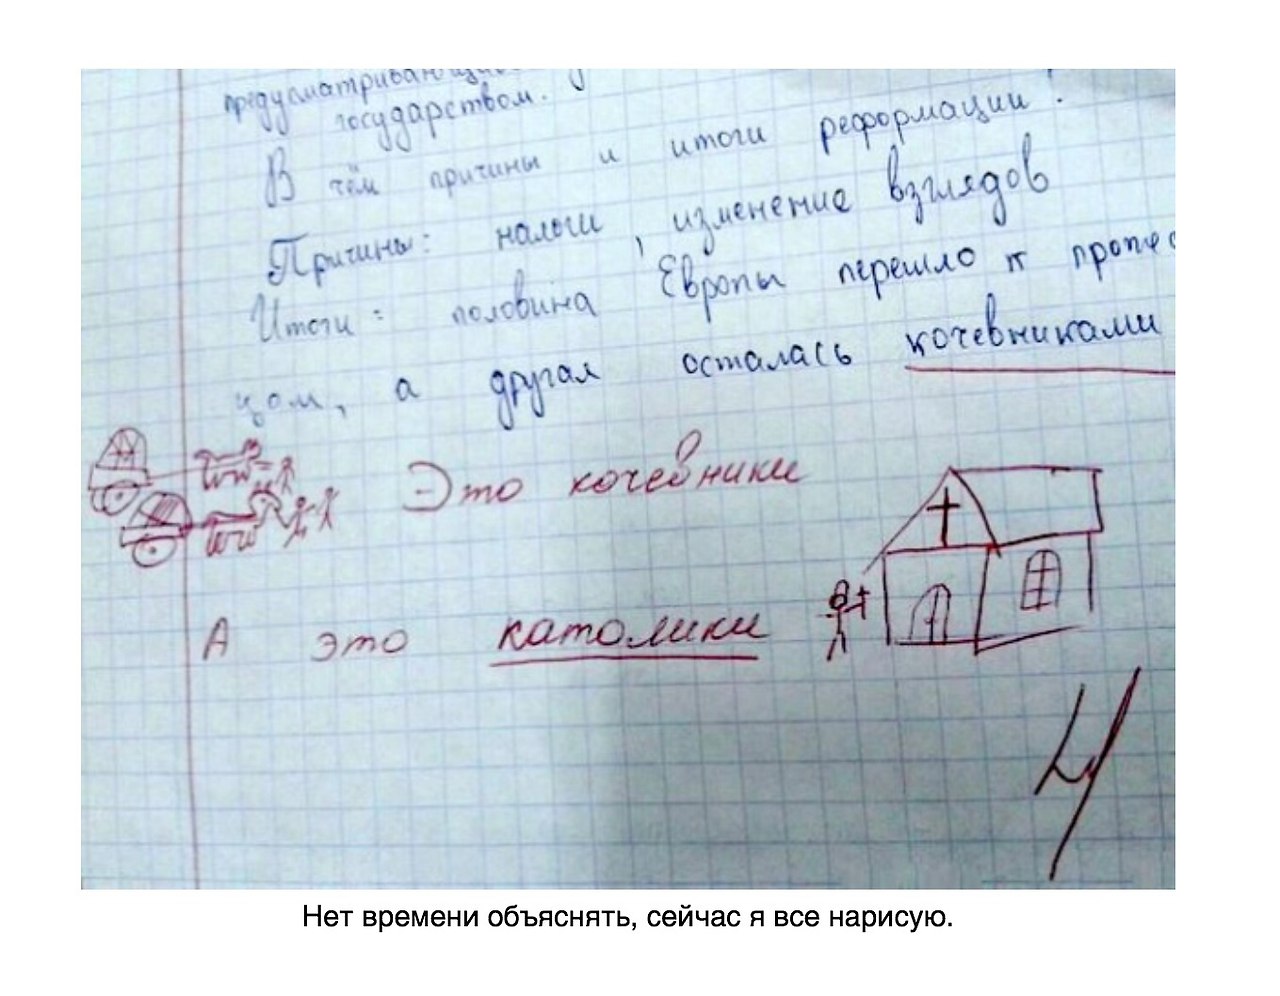 предусматривающ
государством.
В чём причины и итоги реформации?
Причины: налоги, изменение взглядов
Итоги: половина Европы перешло к протес
цом, а другая осталась кочевниками
Это кочевники
А это католики
4
Нет времени объяснять, сейчас я все нарисую.